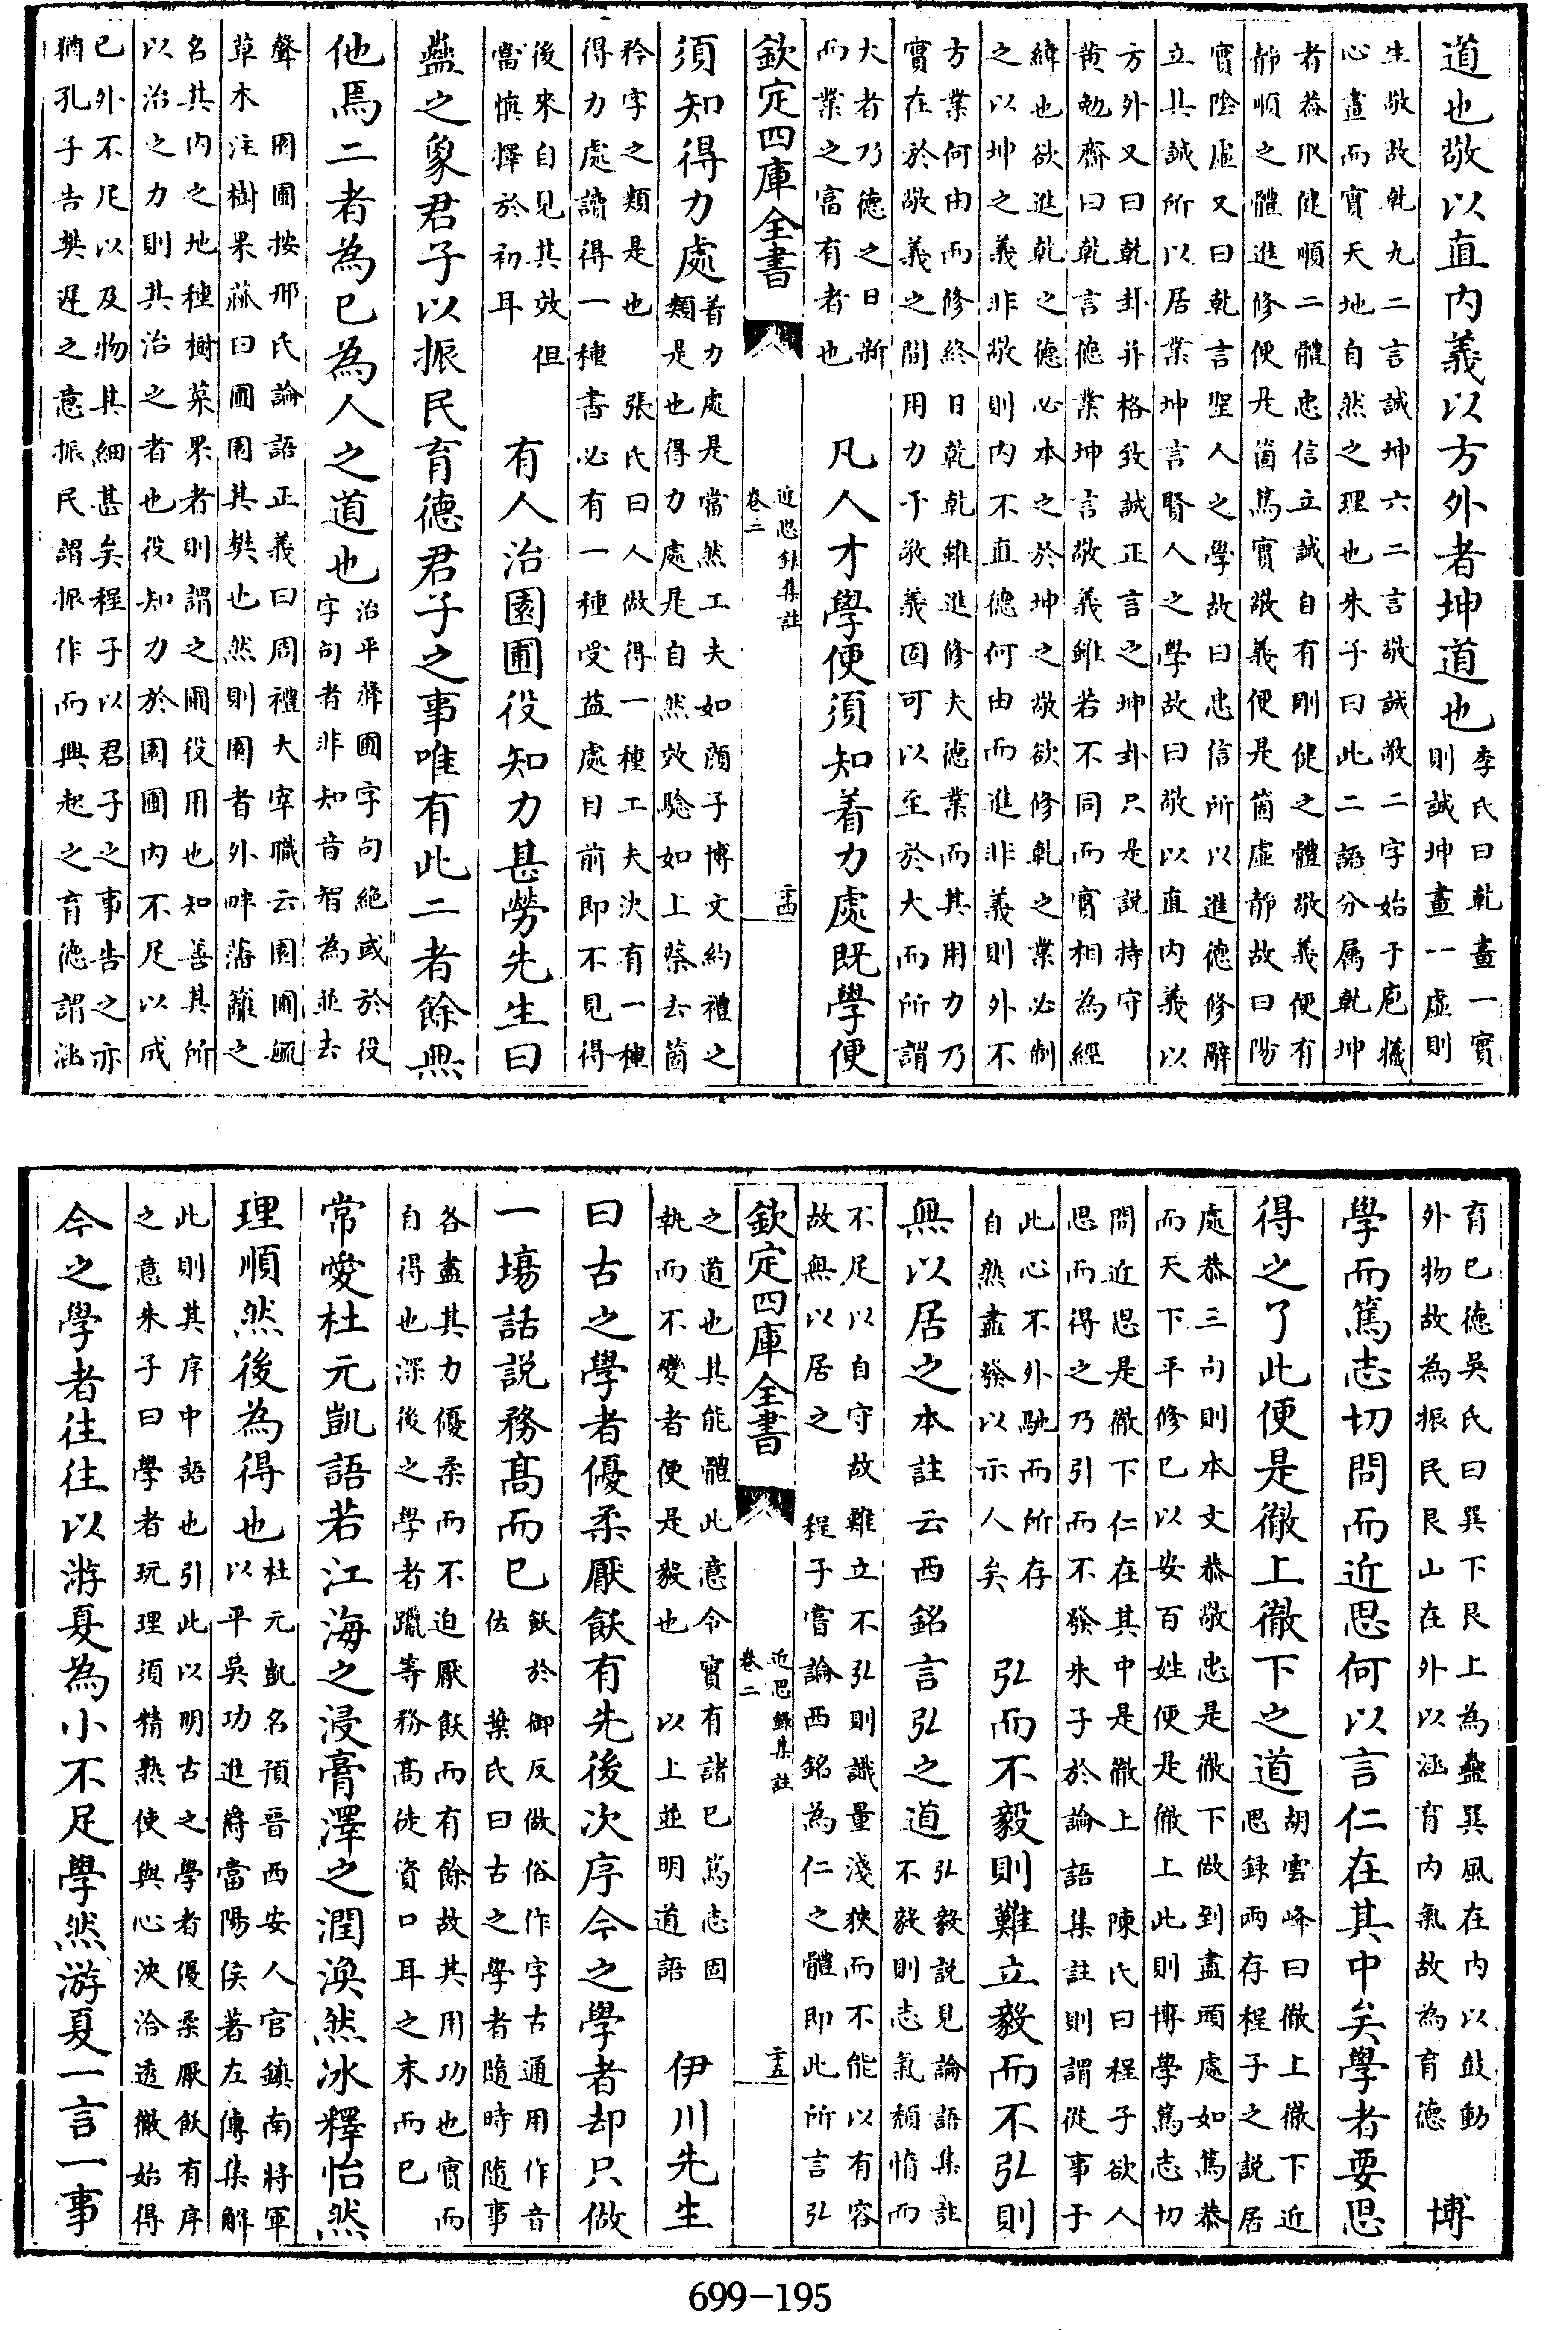 道也敬以直内義以方外者坤道也李氏曰乾畫一實
則誠坤畫一虛則
生敬故乾九二言誠坤六二言敬誠敬二字始于庖犧
心畫而實天地自然之理也朱子曰此二語分属乾坤
者葢取健順二體忠信立誠自有剛健之體敬義便有
靜順之體進修便是箇篤實敬義便是箇虛靜故曰陽
實陰虛又曰乾言聖人之學故曰忠信所以進德修辭
立其誠所以居業坤言賢人之學故曰敬以直内義以
方外又曰乾卦并格致誠正言之坤卦只是説持守
黄勉齋曰乾言德業坤言敬義雖若不同而實相為經
緯也欲進乾之德必本之於坤之敬欲修乾之業必制
之以坤之義非敬則内不直德何由而進非義則外不
方業何由而修終日乾乾雖進修夫德業而其用力乃
實在於敬義之間用力于敬義固可以至於大而所謂
大者乃德之日新
而業之富有者也
凡人才學便須知着力處既學便
欽定四庫全書
近思録集註
卷二
二十四
須知得力處着力處是當然工夫如顔子博文約禮之
類是也得力處是自然效驗如上蔡去箇
矜字之類是也　張氏曰人做得一種工夫決有一種
得力處讀得一種書必有一種受益處目前即不見得
後來自見其效但
當慎擇於初耳
有人治園圃役知力甚勞先生曰
蠱之象君子以振民育德君子之事唯有此二者餘無
他焉二者為已為人之道也治平聲圃字句絶或於役
字句者非知音智為並去
聲　周圃按邢氏論語正義曰周禮大宰職云園圃毓
草木注樹果蓏曰圃園其樊也然則園者外畔藩籬之
名其内之地種樹菜果者則謂之圃役用也知善其所
以治之力則其治之者也役知力於園圃内不足以成
已外不足以及物其細甚矣程子以君子之事告之亦
猶孔子告樊遲之意振民謂振作而興起之育德謂涵
育已德吳氏曰巽下艮上為蠱巽風在内以鼓動
外物故為振民艮山在外以涵育内氣故為育德
博
學而篤志切問而近思何以言仁在其中矣學者要思
得之了此便是徹上徹下之道胡雲峰曰徹上徹下近
思録兩存程子之説居
處恭三句則本文恭敬忠是徹下做到盡頭處如篤恭
而天下平修已以安百姓便是徹上此則博學篤志切
問近思是徹下仁在其中是徹上　陳氏曰程子欲人
思而得之乃引而不發朱子於論語集註則謂從事于
此心不外馳而所存
自熟盡發以示人矣
弘而不毅則難立毅而不弘則
無以居之本註云西銘言弘之道弘毅説見論語集註
不毅則志氣頽惰而
不足以自守故難立不弘則識量淺狹而不能以有容
故無以居之　程子嘗論西銘為仁之體即此所言弘
欽定四庫全書
近思録集註
卷二
二十五
之道也其能體此意令實有諸已篤志固
執而不變者便是毅也　以上並明道語
伊川先生
曰古之學者優柔厭飫有先後次序今之學者却只做
一塲話説務髙而已飫於御反做俗作字古通用作音
佐　葉氏曰古之學者隨時隨事
各盡其力優柔而不迫厭飫而有餘故其用功也實而
自得也深後之學者躐等務髙徒資口耳之末而已
常愛杜元凱語若江海之浸膏澤之潤渙然冰釋怡然
理順然後為得也杜元凱名預晉西安人官鎮南將軍
以平吳功進爵當陽侯著左傳集解
此則其序中語也引此以明古之學者優柔厭飫有序
之意朱子曰學者玩理須精熟使與心浹洽透徹始得
今之學者往往以游夏為小不足學然游夏一言一事
699-195